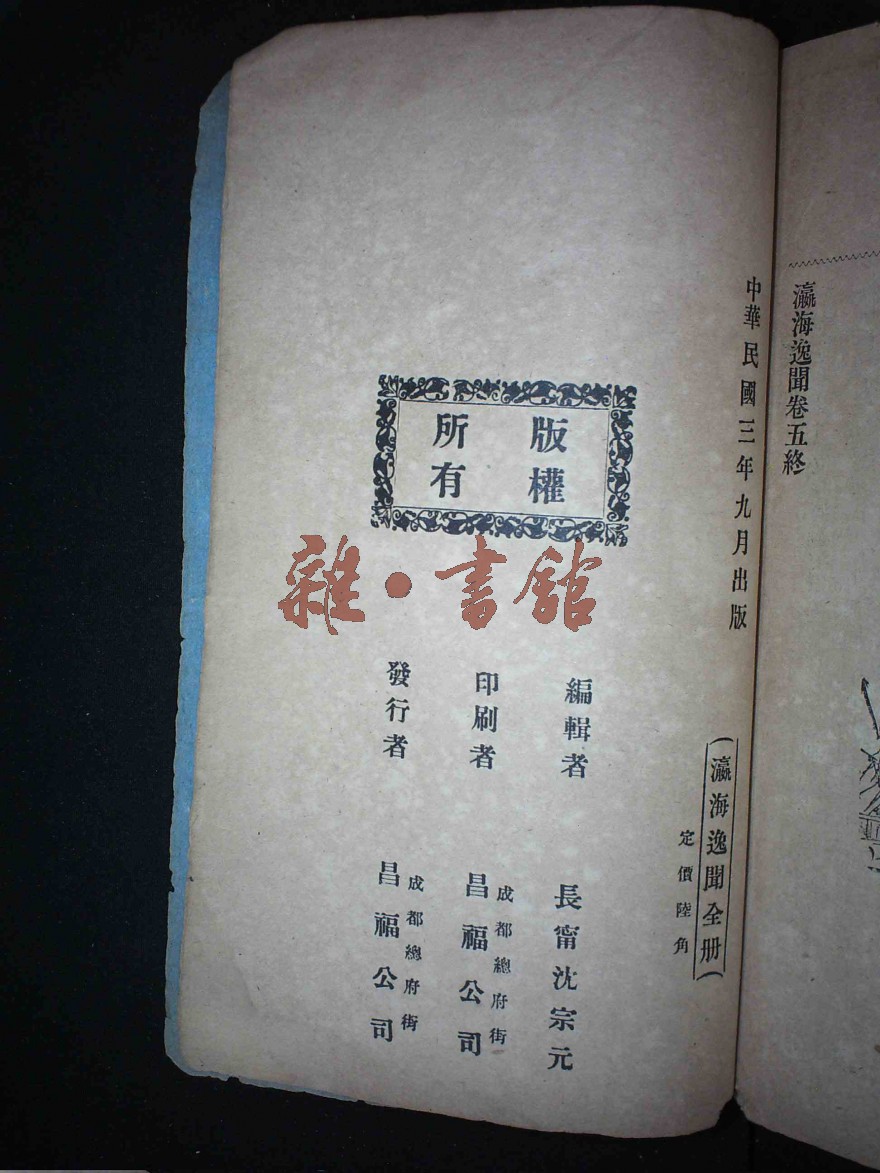 瀛海逸聞卷五終
中華民國三年九月出版
（瀛海逸聞全册）
定價陸角
版權
所有
編輯者 長甯沈宗元
印刷者 成都總府街 昌福公司
發行者 成都總府街 昌福公司
雜·書館